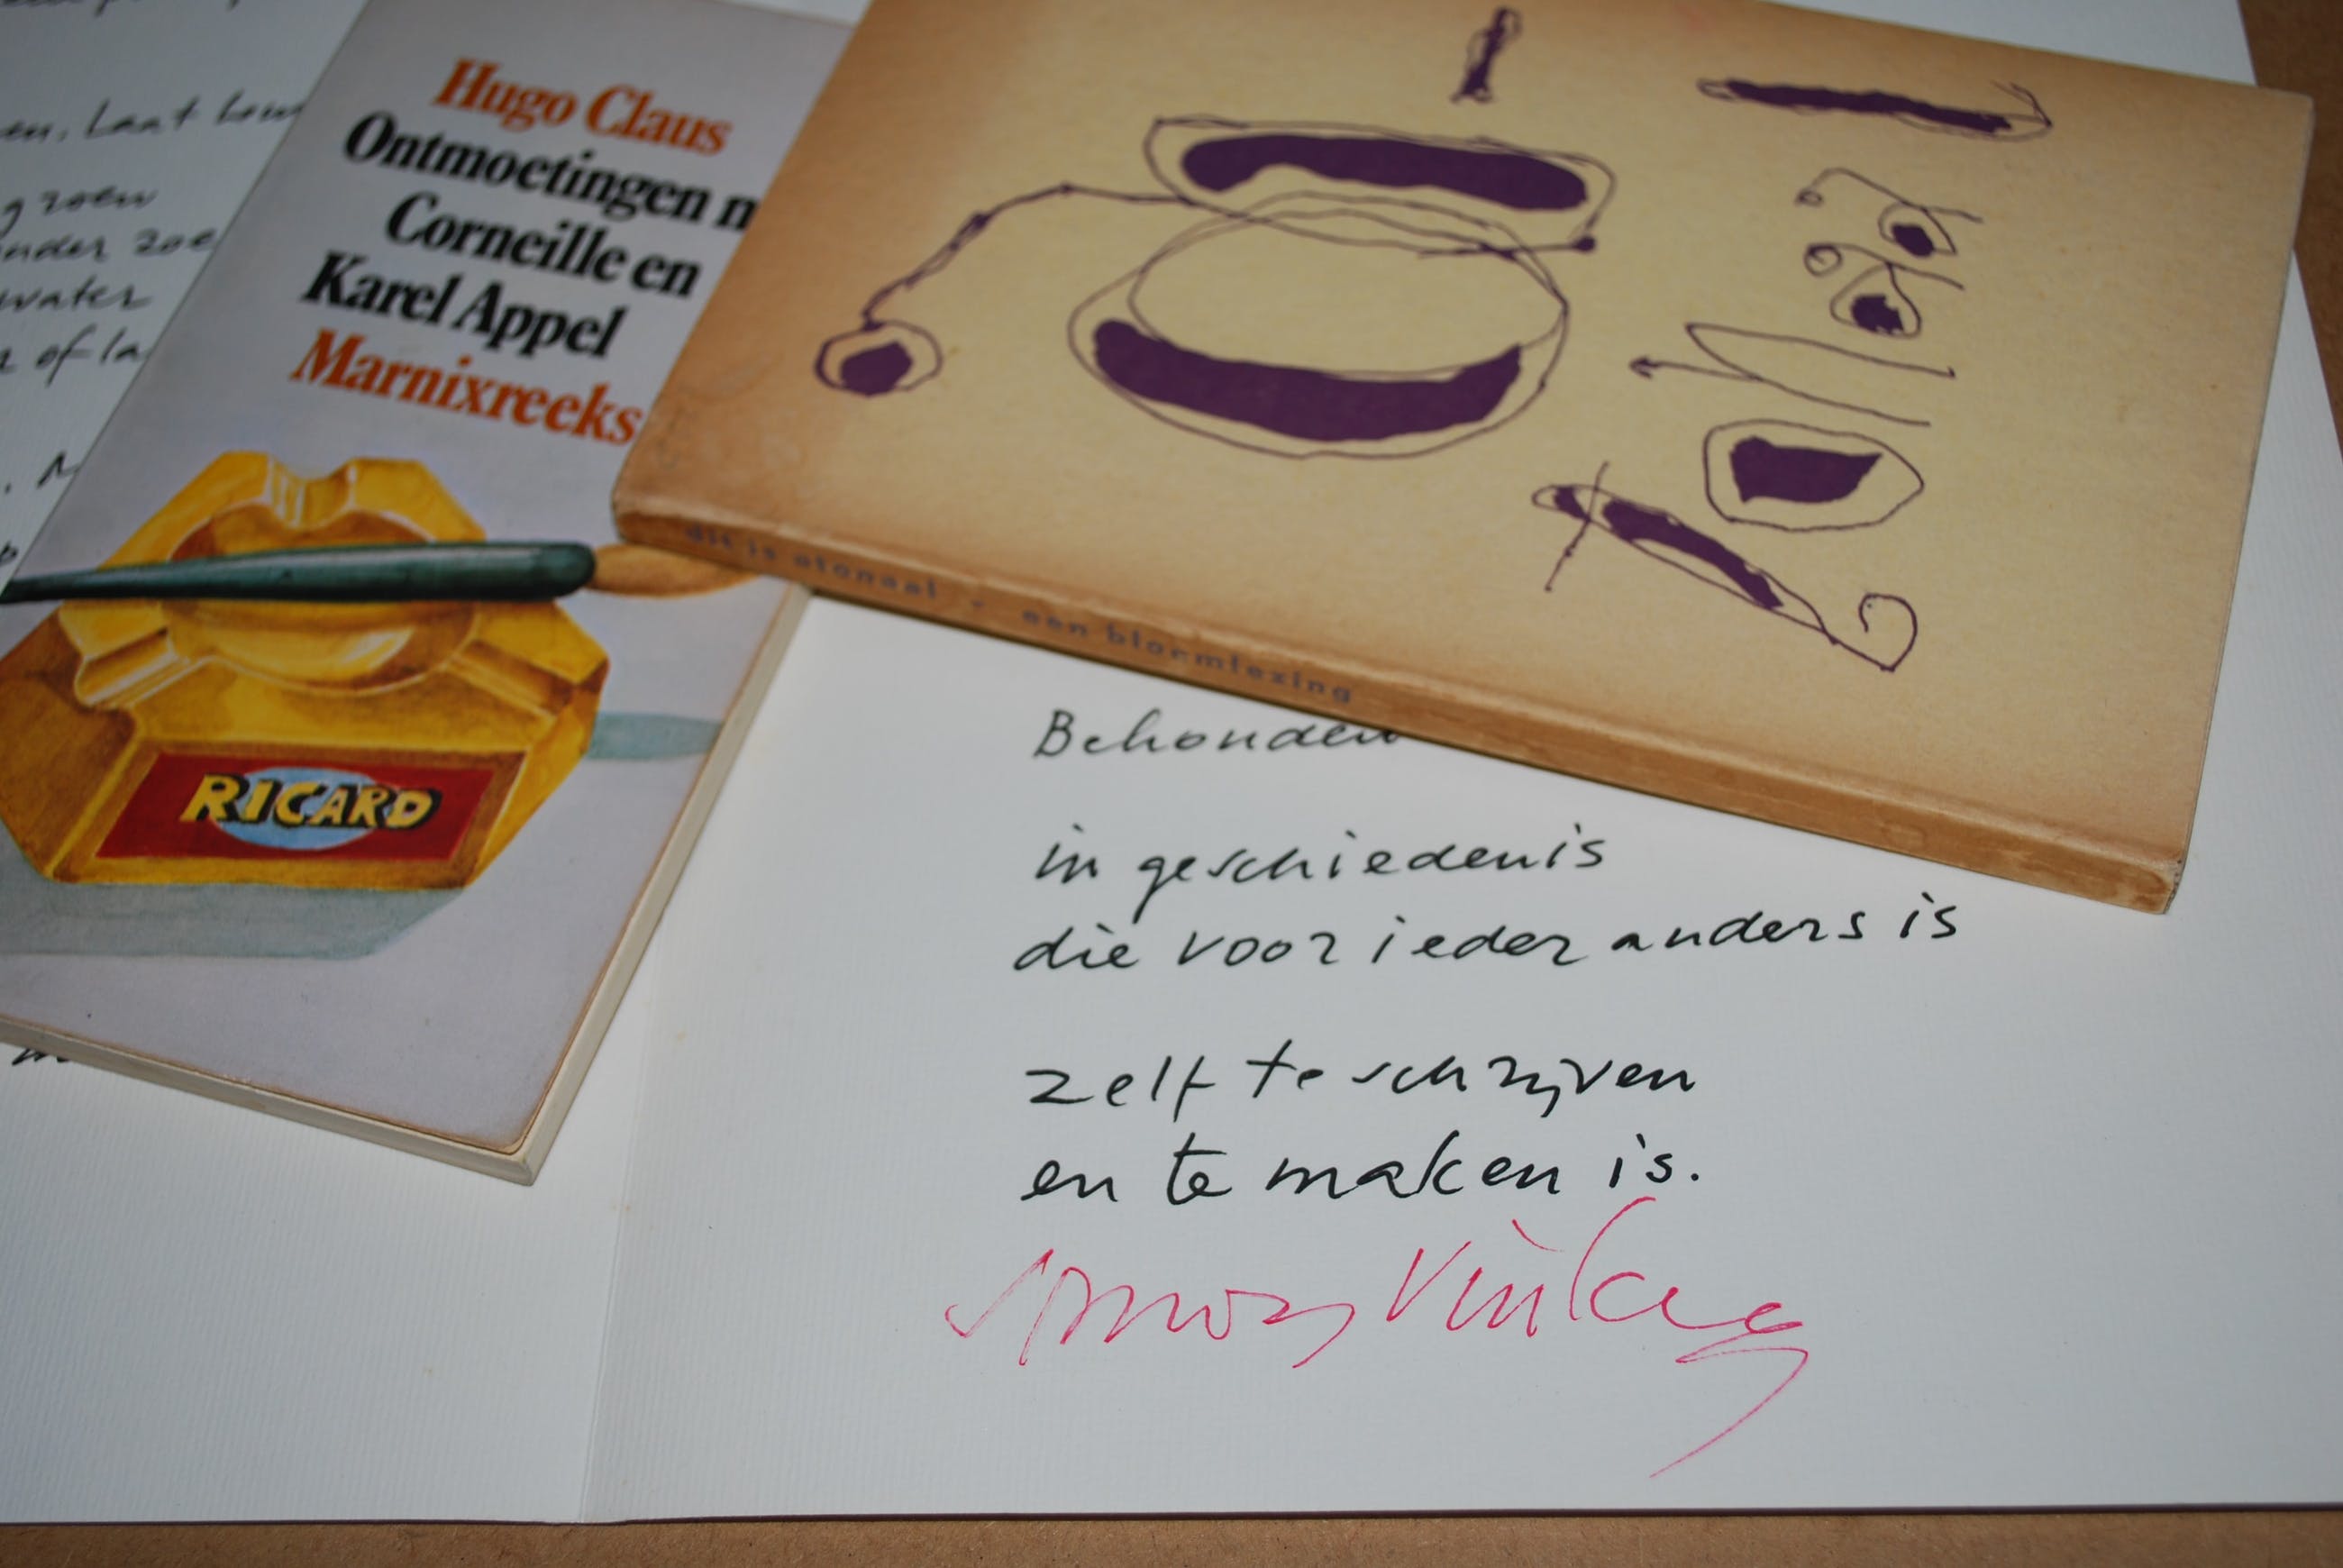 en. Laat
groen
onder zoe
water
of la
Hugo Claus
Ontmoetingen m
Corneille en
Karel Appel
Marnixreeks
RICARD
atonaal
dit is atonaal - een bloemlezing
Behouden
in geschiedenis
die voor ieder anders is
zelf te schrijven
en te maken is.
simon vinkenoog